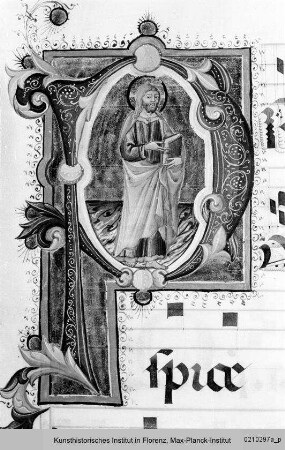 spice
Kunsthistorisches Institut in Florenz, Max-Planck-Institut 0210297a_p